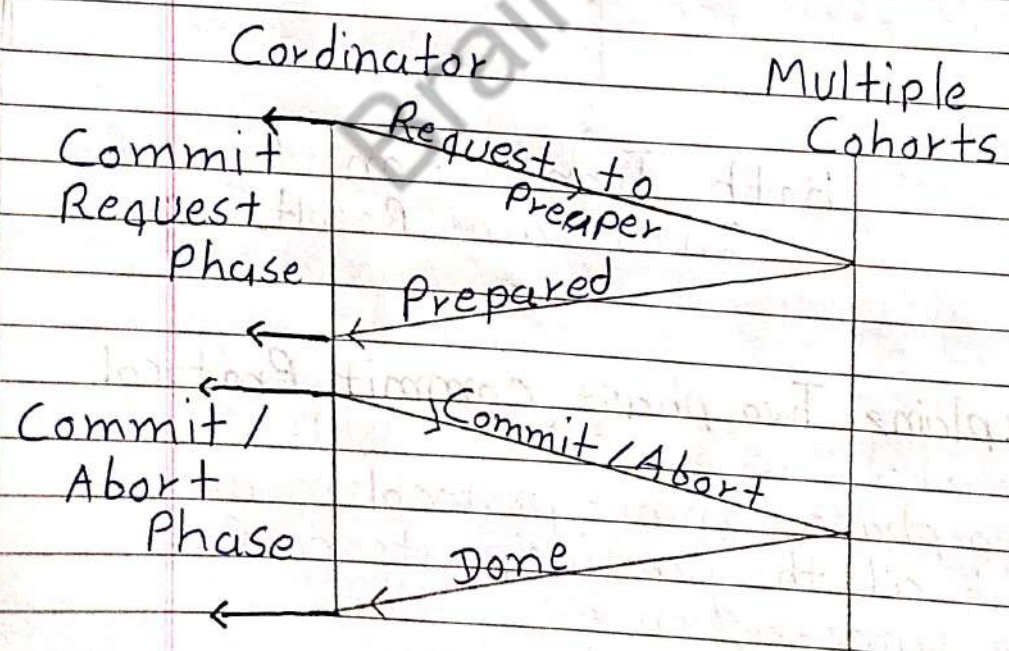 Cordinator
Multiple
Cohorts
Commit
Request
Phase
Request to
Preaper
Prepared
Commit /
Abort
Phase
Commit / Abort
Done